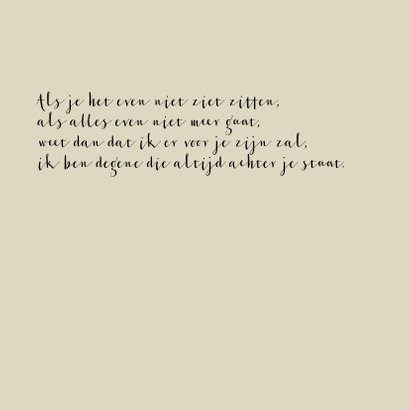 Als je het even niet ziet zitten,
als alles even niet meer gaat,
weet dan dat ik er voor je zijn zal,
ik ben degene die altijd achter je staat.